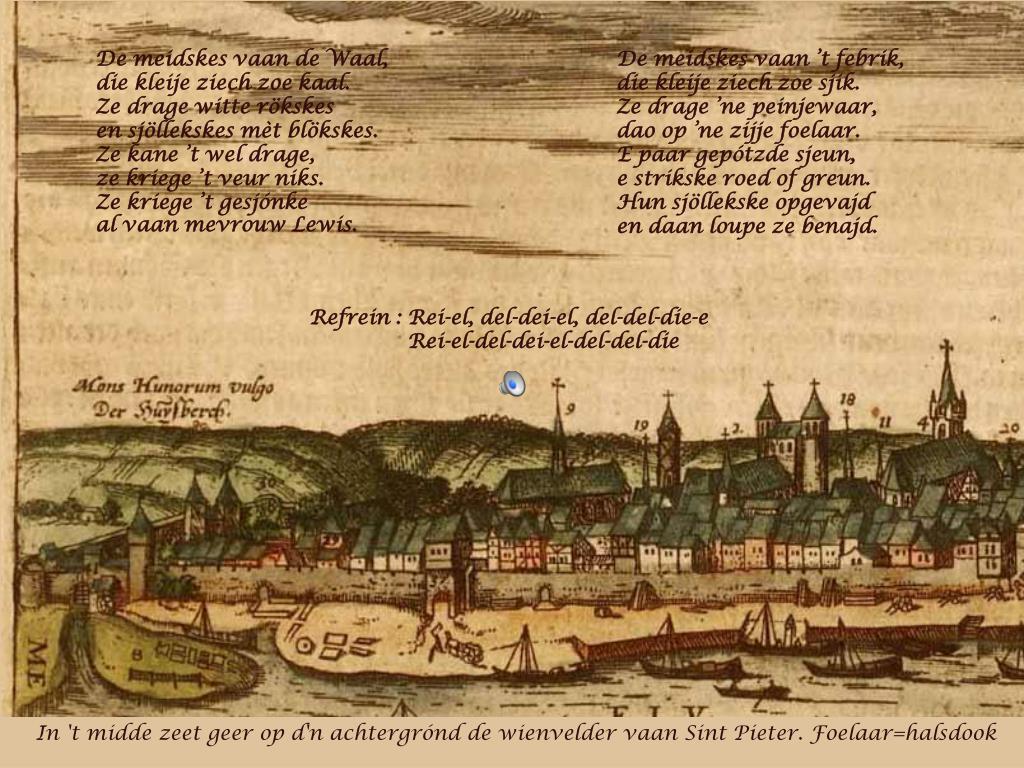 De meidskes vaan de Waal,
die kleije ziech zoe kaal.
Ze drage witte rökskes
en sjöllekskes mèt blökskes.
Ze kane 't wel drage,
ze kriege 't veur niks.
Ze kriege 't gesjónke
al vaan mevrouw Lewis.
De meidskes vaan 't febrik,
die kleije ziech zoe sjik.
Ze drage 'ne peinjewaar,
dao op 'ne zijje foelaar.
E paar gepótzde sjeun,
e strikske roed of greun.
Hun sjöllekske opgevajd
en daan loupe ze benajd.
Refrein : Rei-el, del-dei-el, del-del-die-e
Rei-el-del-dei-el-del-del-die
Mons Hunorum vulgo
Der Huÿsberch.
9
19
2.
18
11
4
20
8
ME
In 't midde zeet geer op d'n achtergrónd de wienvelder vaan Sint Pieter. Foelaar=halsdook